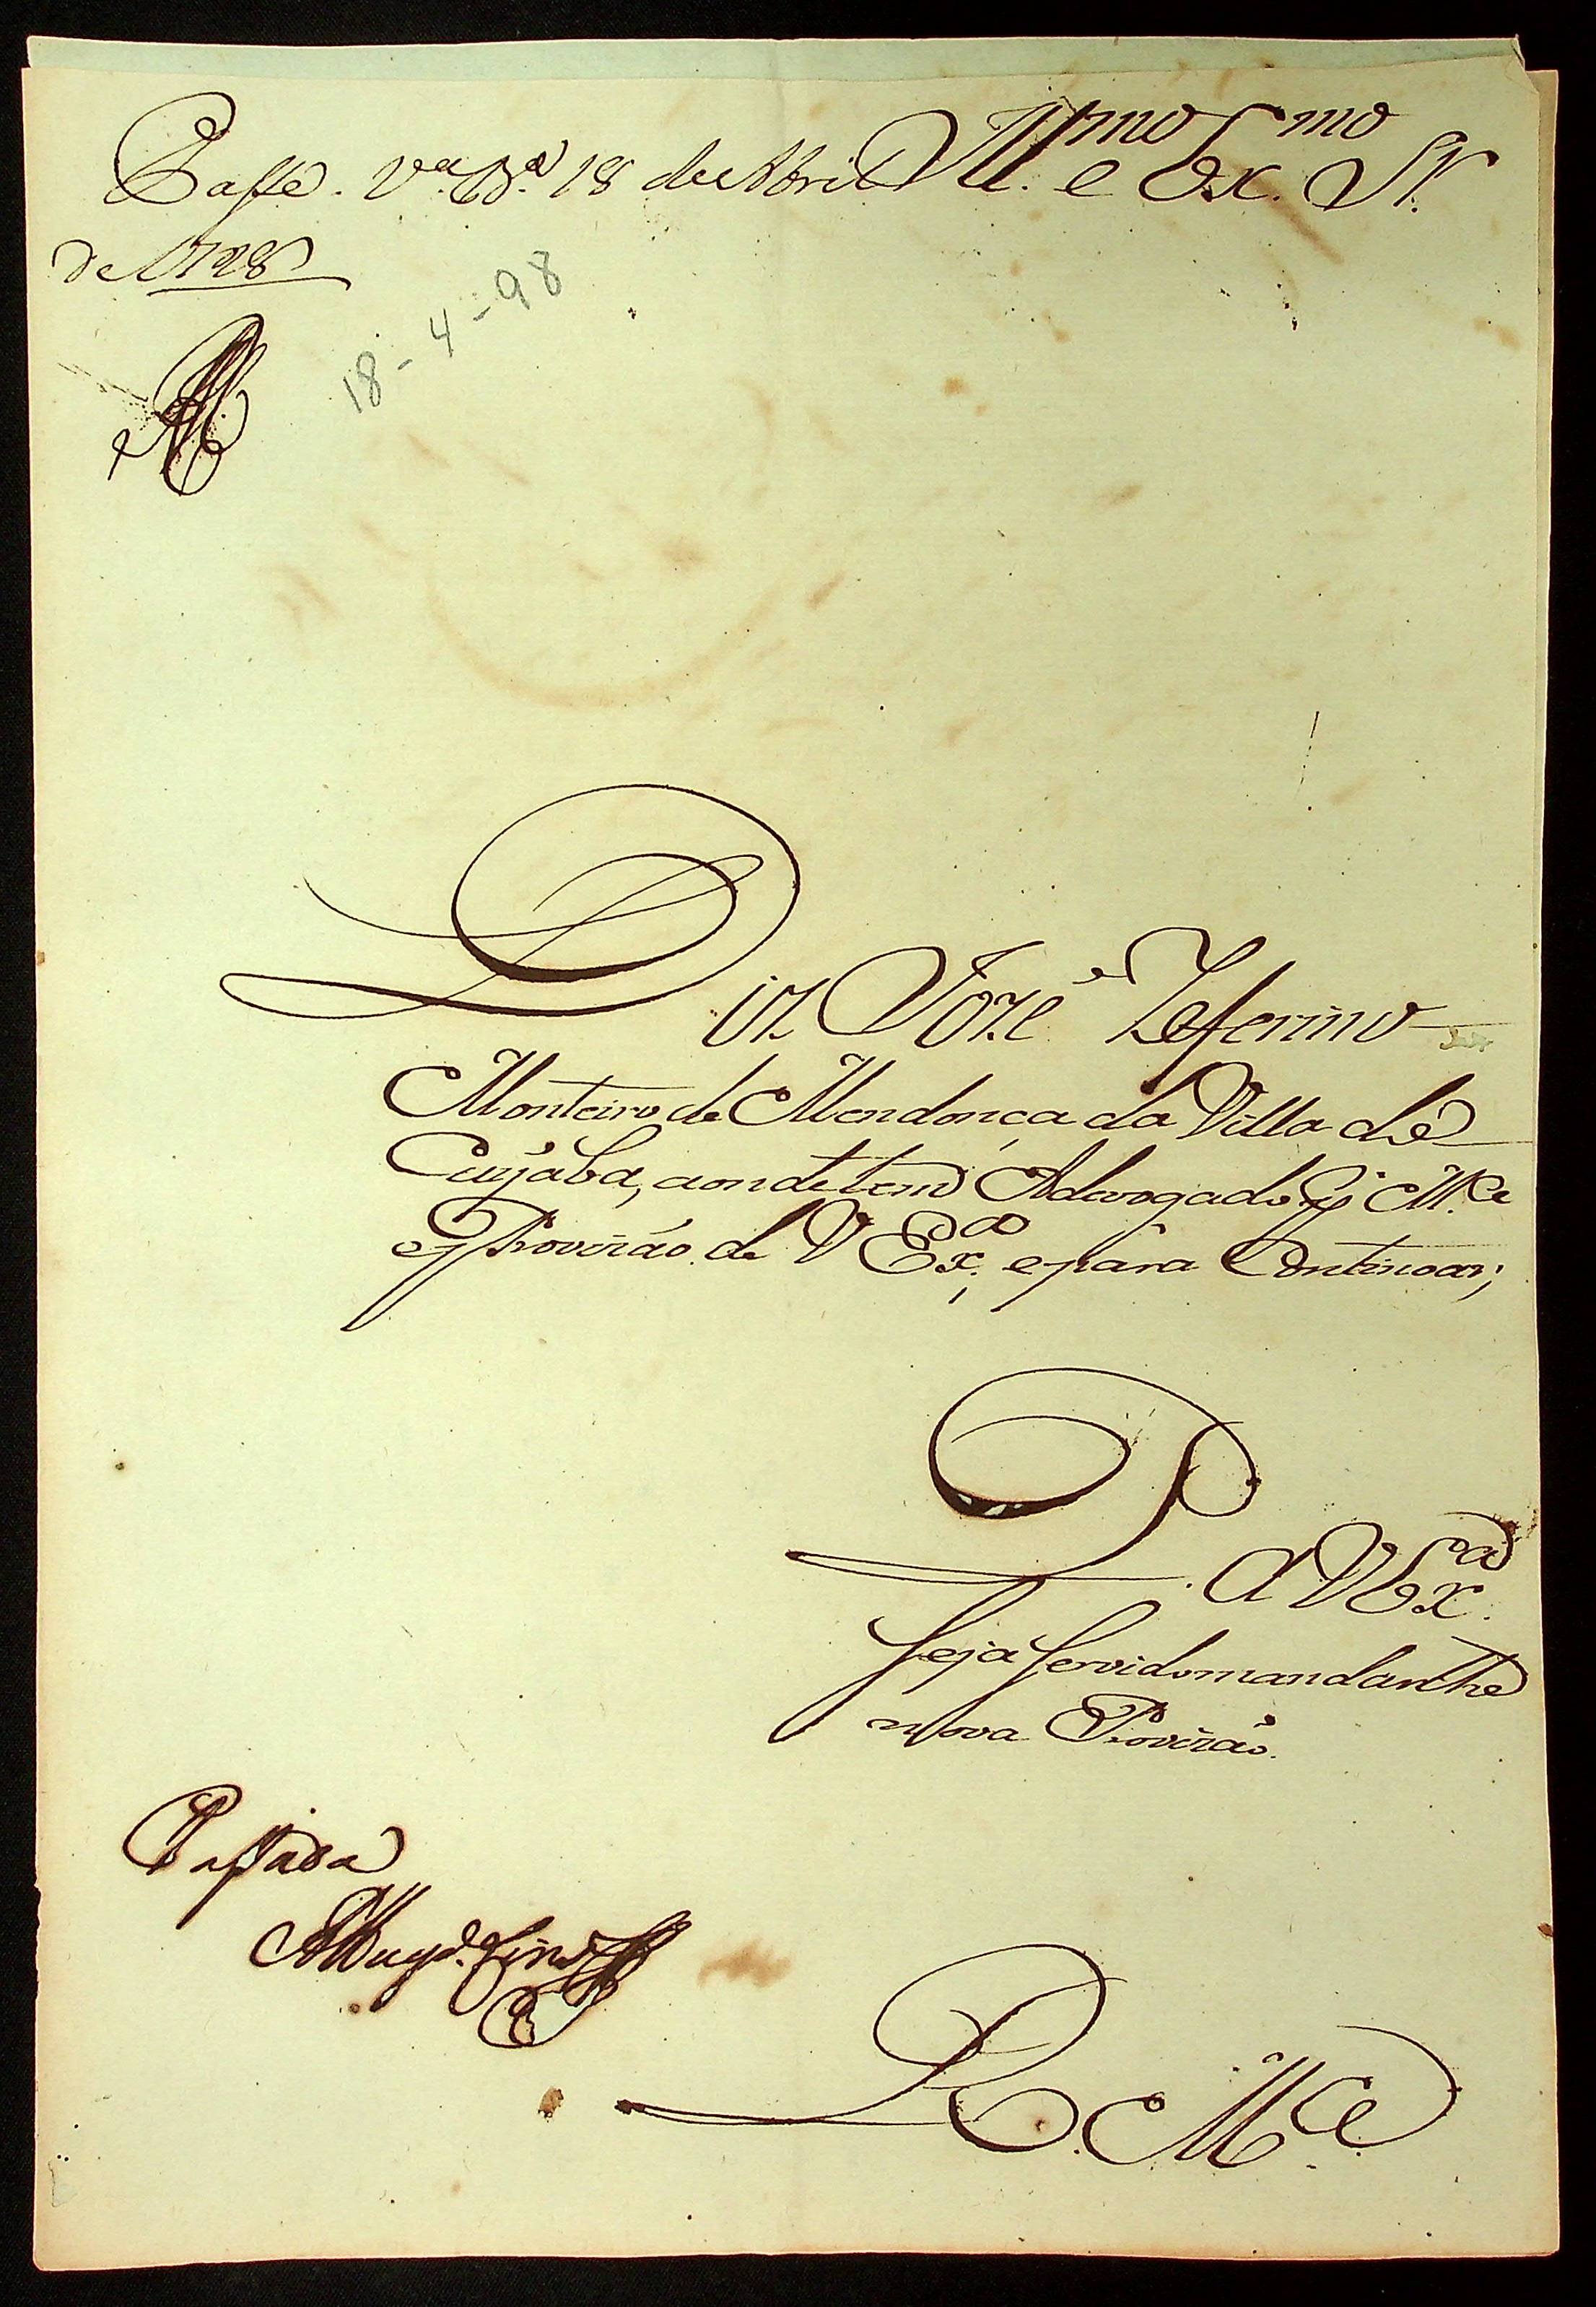 Passe. Vª. Bª. 18 de Abril
de 1798
18-4-98
Illmo. e Exmo. Sr.
Diz Jozé Zeferino
Monteiro de Mendonça da Villa de
Cuyabá, aonde tem Advogado pr. Mce
e Provizáo de V Exª, e para Continoar;
P. a V Exª.
seja servido mandar lhe
nova Provizáo.
Passada
R. Mce.